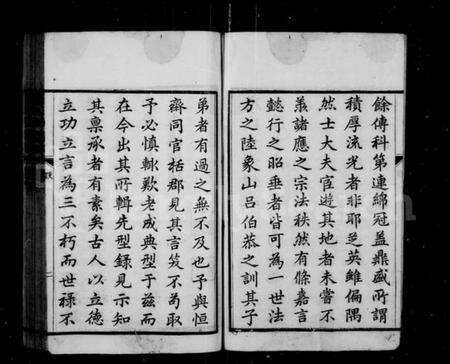 餘傳科第連綿冠蓋鼎盛所謂
積厚流光者非耶芝英雖偏隅
然士大夫宦遊其地者未嘗不
羨諸應之宗法秩然有條嘉言
懿行之昭垂者皆可為一世法
方之陸象山呂伯恭之訓其子
弟者有過之無不及也予與恒
齋同官栝郡見其言笑不苟取
予必慎輒歎老成典型于茲而
在今出其所輯先型錄見示知
其稟承者有素矣古人以立德
立功立言為三不朽而世祿不